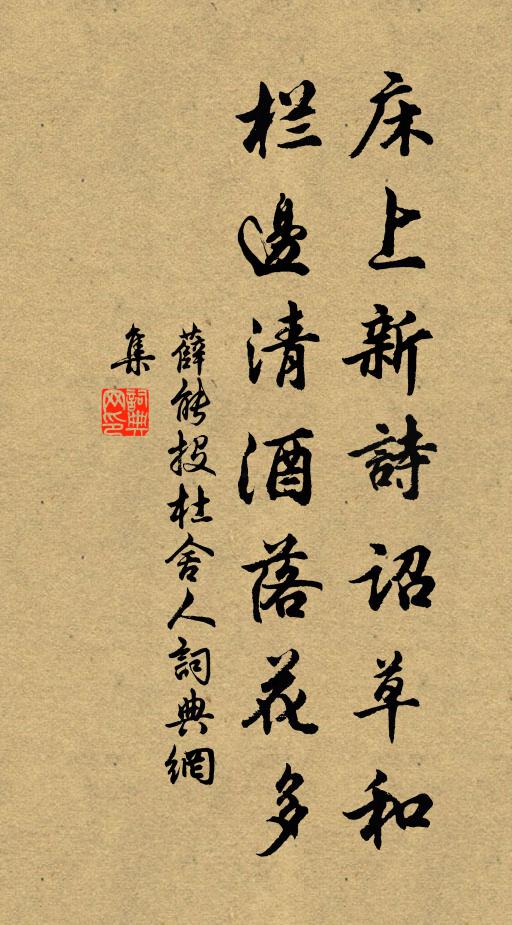 床上新詩詔草和
栏邊清酒落花多
薛能投杜舍人詞典網
集
詞典網印